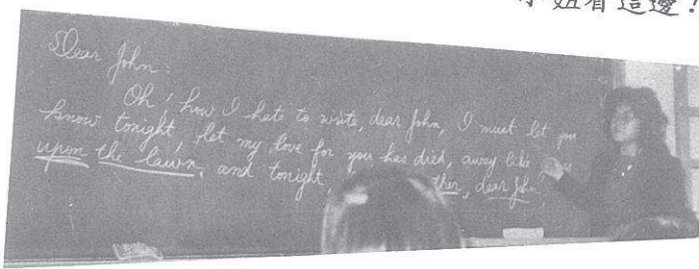 看這邊!
Dear John:
Oh! how I hate to write, dear John, I must let you
know tonight, let my love for you has died, away like
upon the lawn, and tonight, ther, dear John